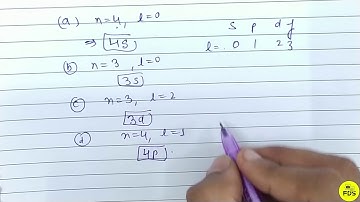 (a) n=4, l=0
⇒ 4s
(b) n=3, l=0
3s
(c) n=3, l=2
3d
(d) n=4, l=1
4p.
s p d f
l=. 0 1 2 3
FDS